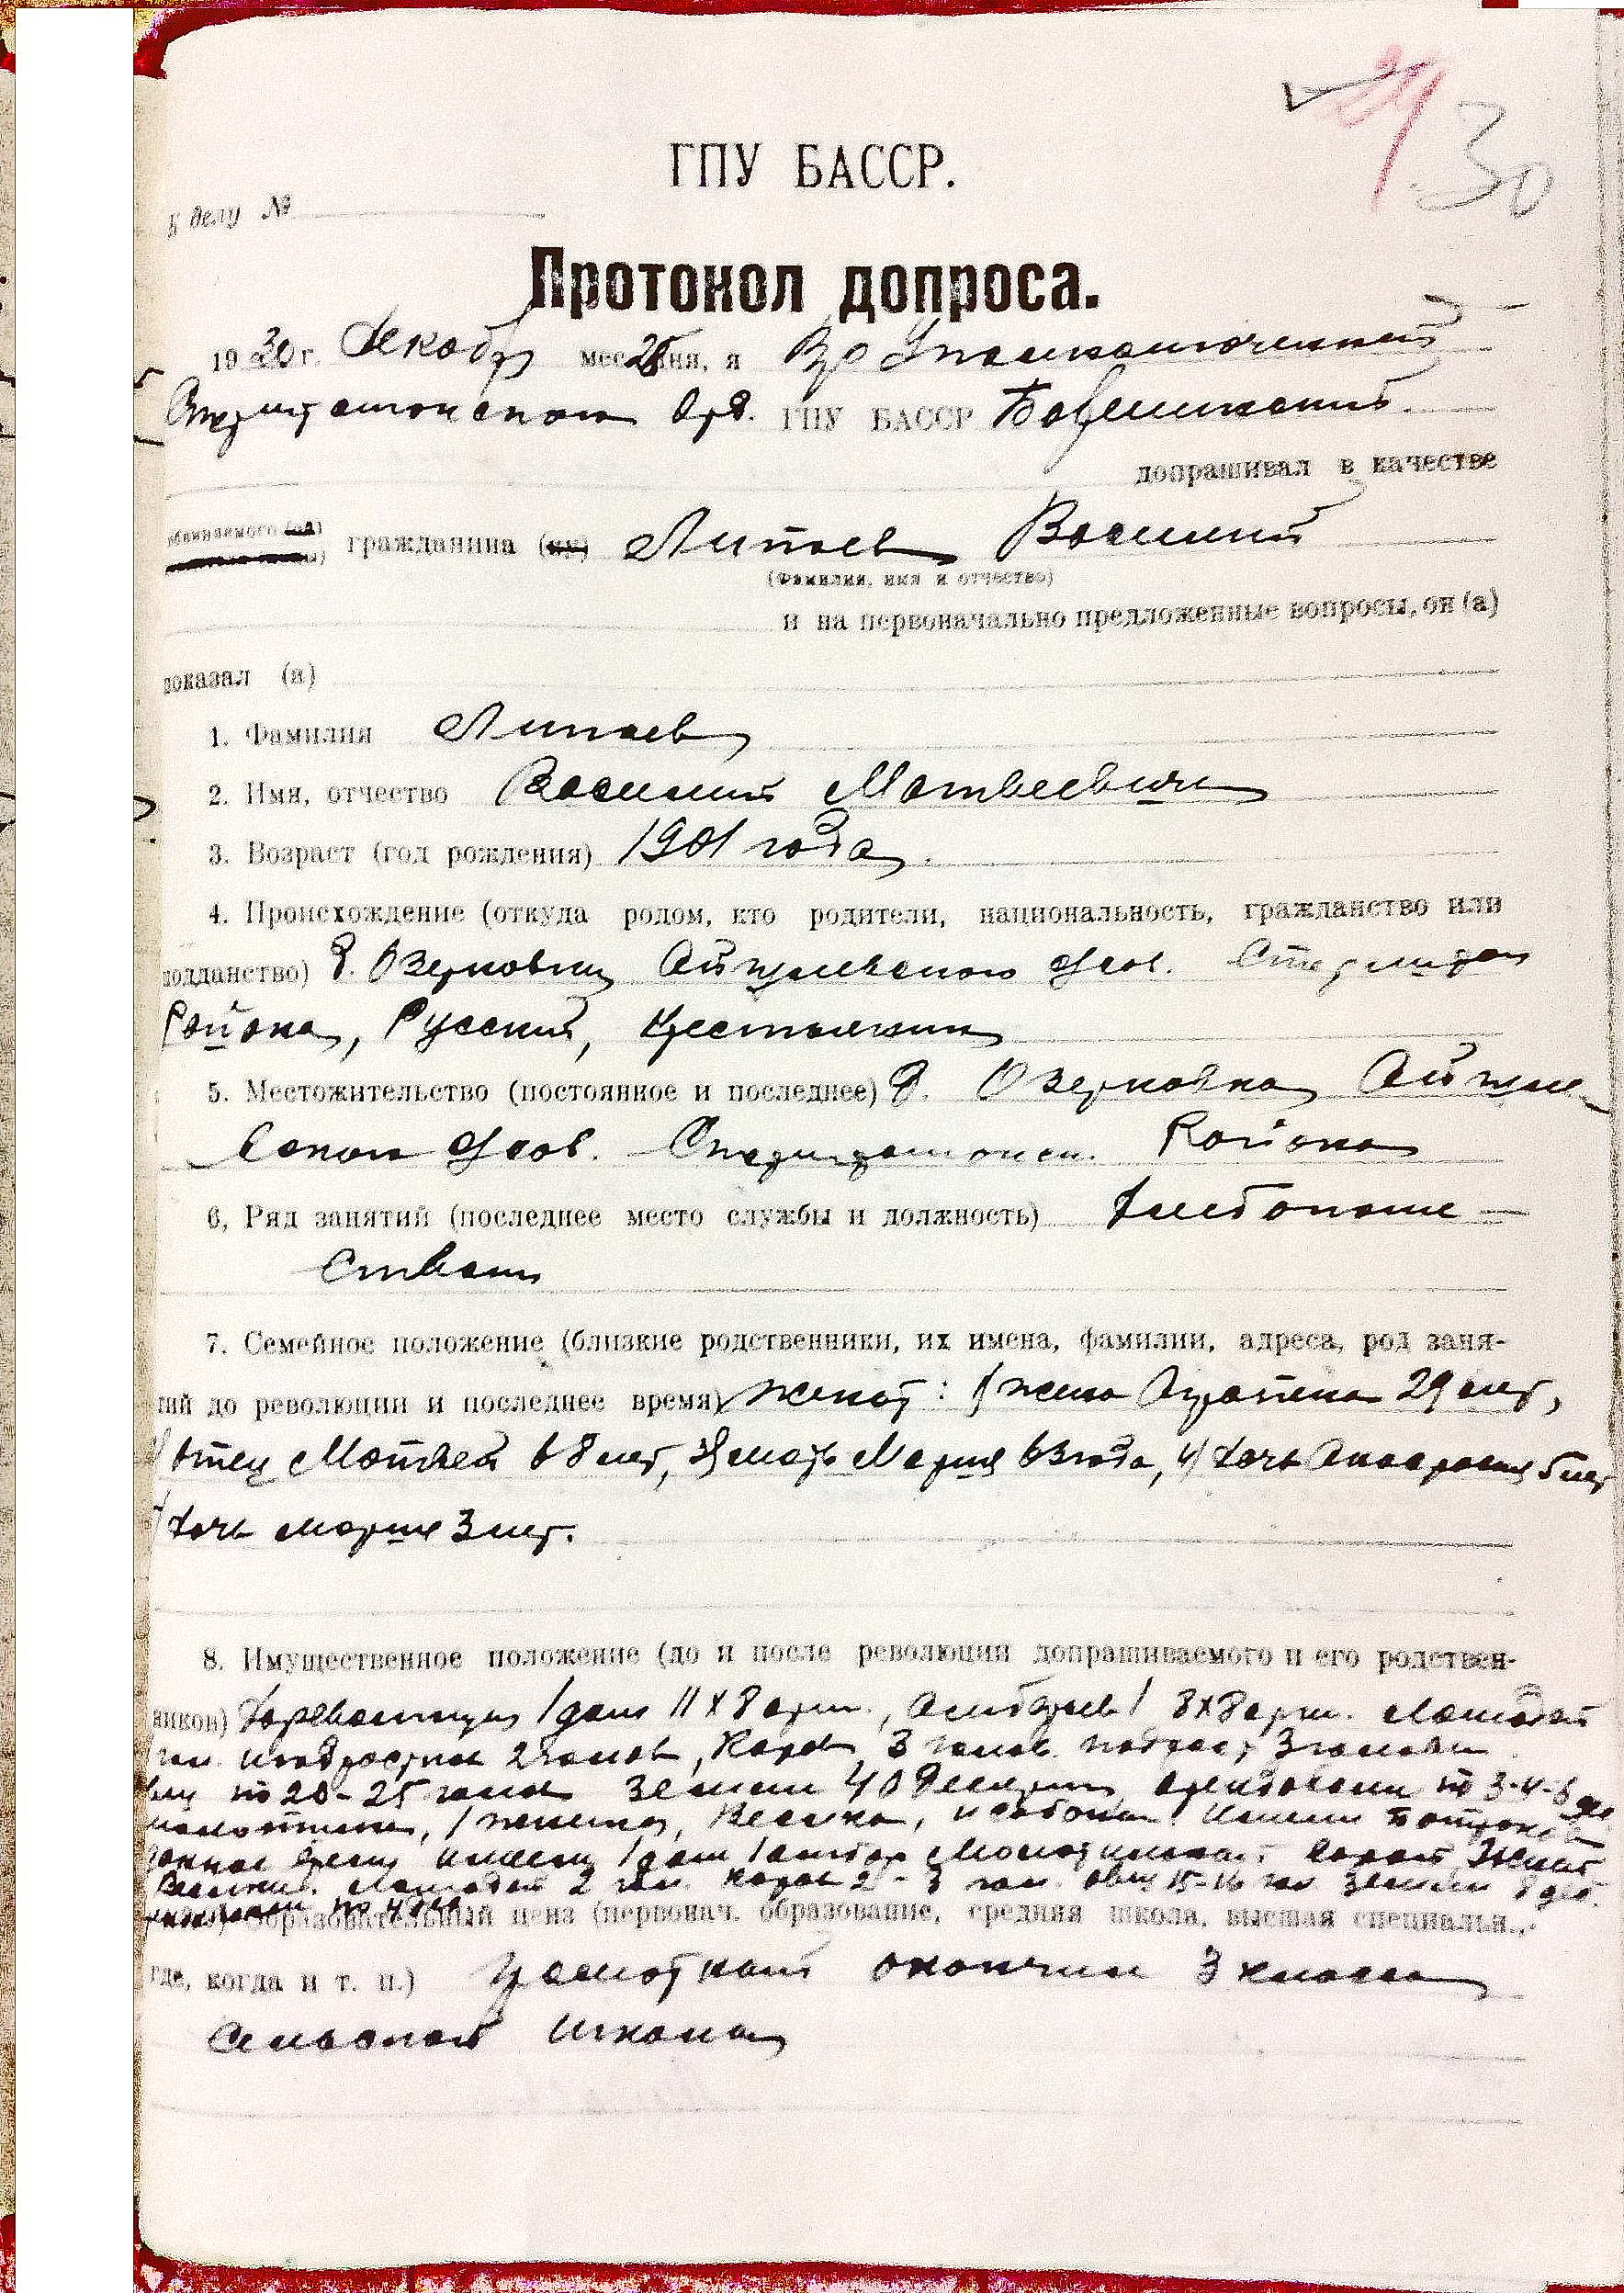 29 30
ГПУ БАССР.
К делу №
Протокол допроса.
1930 г. Декабр месяца 26 дня, я Вр Уполномоченный
Стерлитамакского Отд. ГПУ БАССР
допрашивал в качестве
обвиняемого (ой) гражданина (ку) Липаев Василий
(Фамилия, имя и отчество)
и на первоначально предложенные вопросы, он (а)
показал (а)
1. Фамилия Липаев
2. Имя, отчество Василий Матвеевич
3. Возраст (год рождения) 1901 года.
4. Происхождение (откуда родом, кто родители, национальность, гражданство или
подданство) д. Озерковки
Района, Русский, Крестьянин
5. Местожительство (постоянное и последнее) д. Озерковка
Района
6, Ряд занятий (последнее место службы и должность) Хлебопаше-
ством
7. Семейное положение (близкие родственники, их имена, фамилии, адреса, род заня-
тий до революции и последнее время) женат: 1) жена 29 лет,
отец Матвей 68 лет, 3) мать Мария 63 года, 4) дочь Анастасия 5 лет
дочь Мария 3 лет.
8. Имущественное положение (до и после революции допрашиваемого и его родствен-
ников) До революции 1 дом 11х8 арш., 8х8 арш. Лошадей
подростка 2 голов, Коров 3 голов. подрост 3 головы
овец по 20-25 голов земли 40 десятин, арендовали по 3-4-5
молотилка, 1 жнейка, Веялка, имели
время имели 1 дом 1 амбар
Лошадей 2 гол. Коров 2-3 гол. овец 15-16 гол земли 8 дес.
образовательный ценз (первонач. образование, средняя школа, высшая специальн..
где, когда и т. п.) Грамотный окончил 3 класса
Сельской школы